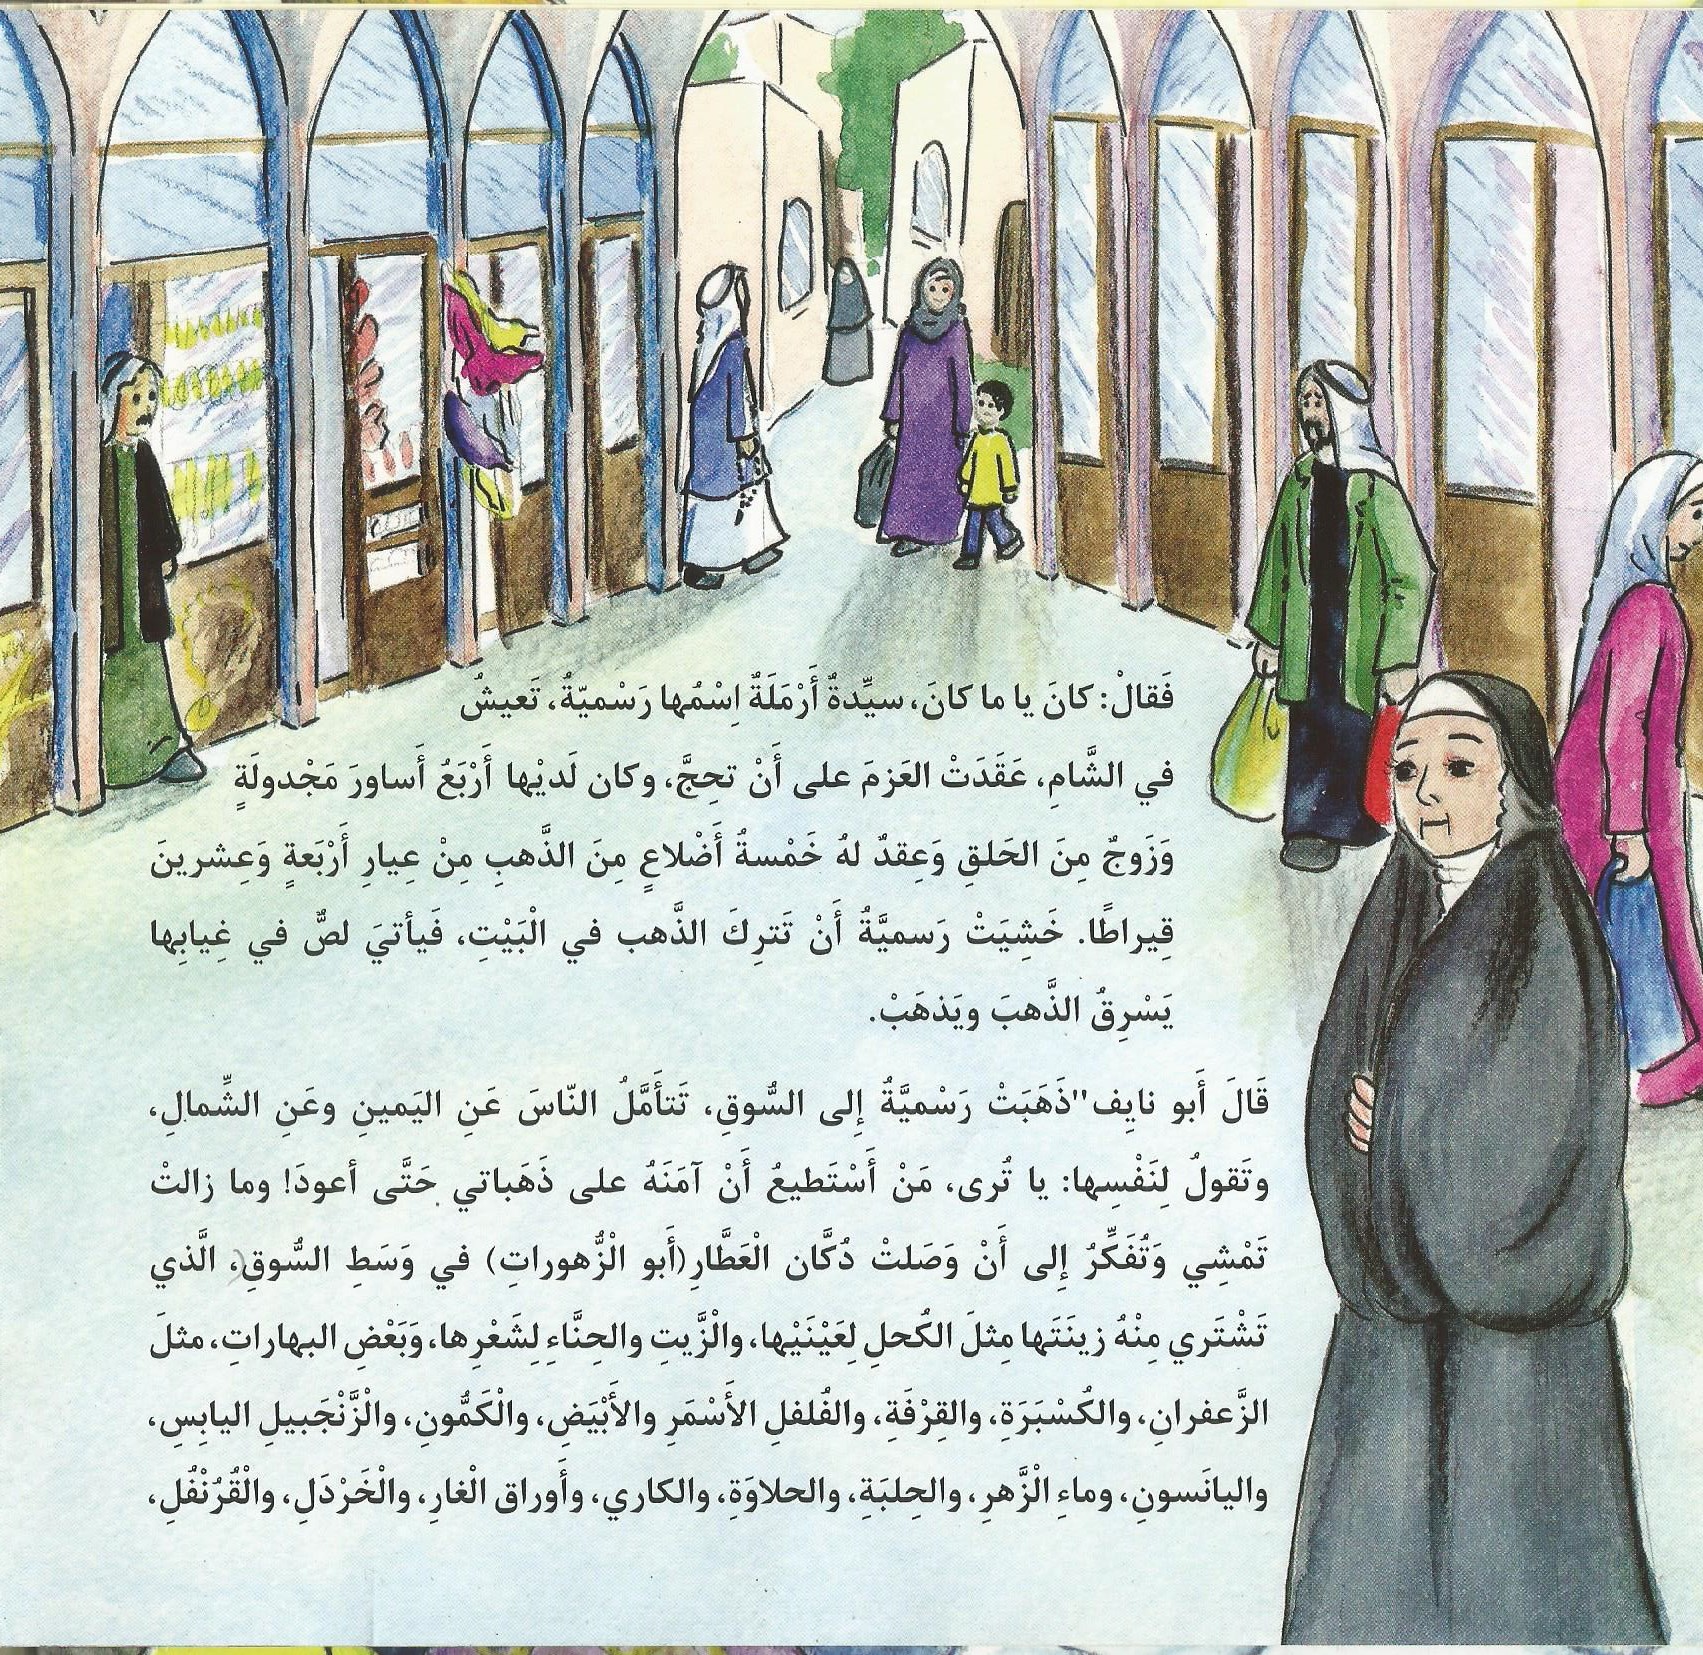 فَقالْ: كانَ يا ما كانَ، سيِّدةٌ أَرْمَلَةٌ اِسْمُها رَسْميّةُ، تَعيشُ
في الشَّامِ، عَقَدَتْ العَزمَ على أَنْ تحِجَّ، وكان لَديْها أَرْبَعُ أَساورَ مَجْدولَةٍ
وَزَوجٌ مِنَ الحَلقِ وَعِقدٌ لهُ خَمْسةُ أَضْلاعٍ مِنَ الذَّهبِ مِنْ عِيارِ أَرْبَعةٍ وَعِشرينَ
قِيراطًا. خَشِيَتْ رَسميَّةُ أَنْ تَترِكَ الذَّهب في الْبَيْتِ، فَيأتيَ لصٌّ في غِيابِها
يَسْرِقُ الذَّهبَ ويَذهَبْ.
قَالَ أَبو نايِف"ذَهَبَتْ رَسْميَّةٌ إِلى السُّوقِ، تَتأَمَّلُ النّاسَ عَنِ اليَمينِ وعَنِ الشِّمالِ،
وتَقولُ لِنَفْسِها: يا تُرى، مَنْ أَسْتَطيعُ أَنْ آمَنَهُ على ذَهَباتي حَتَّى أعودَ! وما زالتْ
تَمْشِي وَتُفَكِّرُ إِلى أَنْ وَصَلتْ دُكَّان الْعَطَّارِ(أَبو الْزُّهوراتِ) في وَسَطِ السُّوقِ، الَّذي
تَشْتَري مِنْهُ زينَتَها مِثلَ الكُحلِ لِعَيْنَيْها، والْزَّيتِ والحِنَّاءِ لِشَعْرِها، وَبَعْضِ البهاراتِ، مثلَ
الزَّعفرانِ، والكُسْبَرَةِ، والقِرْفَةِ، والفُلفلِ الأَسْمَرِ والأَبْيَضِ، والْكَمُّونِ، والْزَّنْجَبيلِ اليابِسِ،
واليانَسونِ، وماءِ الْزَّهرِ، والحِلبَةِ، والحلاوَةِ، والكاري، وأَوراق الْغارِ، والْخَرْدَلِ، والْقُرُنْفُلِ،